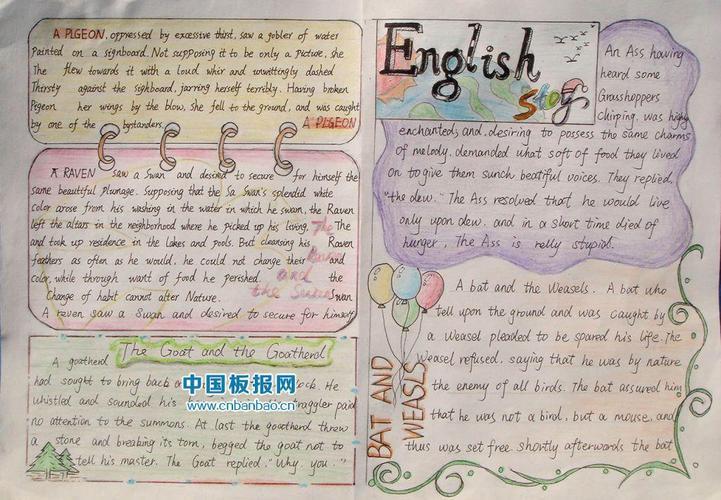 A PLGEON, oppressed by excessive thist, saw a gobler of water
painted on a signboard. Not supposing it to be only a picture, she
The flew towards it with a loud whir and unwittingly dashed
Thirsty against the sighboard, jarring herself terribly. Having broken
Pegeon her wings by the blow, she fell to the ground, and was caught
by one of the bystanders. A PLGEON
A RAVEN saw a Swan and desired to secure for himself the
same beautiful plumage. Supposing that the Sa Swan's splendid white
color arose from his washing in the water in which he swan, the Raven
left the altars in the neighborhood where he picked up his living, The The
and took up residence in the lakes and pools. But cleansing his Raven
feathers as often as he would, he could not change their Raven and
color, while through want of food he perished. and the
Change of habit cannot alter Nature. the Swan swan
A raven saw a Swan and desired to secure for himself
The Goat and the Goatherd
A goatherd
had sought to bring back a ock. He
whistled and sounded his traggler paid
no attention to the summons. At last the goatherd threw
a stone and breaking its torn, begged the goat not to
tell his master. The Goat replied, "Why, you."
中国板报网
www.cnbanbao.cn
English
stoy
An Ass having
heard some
Grasshoppers
chirping, was highy
enchanted; and, desiring to possess the same charms
of melody, demanded what soft of food they lived
on to give them sunch beatiful voices. They replied,
"the dew." The Ass resolved that he would live
only upon dew, and in a short time died of
hunger, The Ass is relly stupid.
BAT AND
WEASLS
A bat and the Weasels. A bat who
tell upon the ground and was caught by
a Weasel pleaded to be spared his life. The
Weasel refused, saying that he was by nature
the enemy of all birds. The bat assured him
that he was not a bird, but a mouse, and
thus was set free. Shortly afterwards the bat